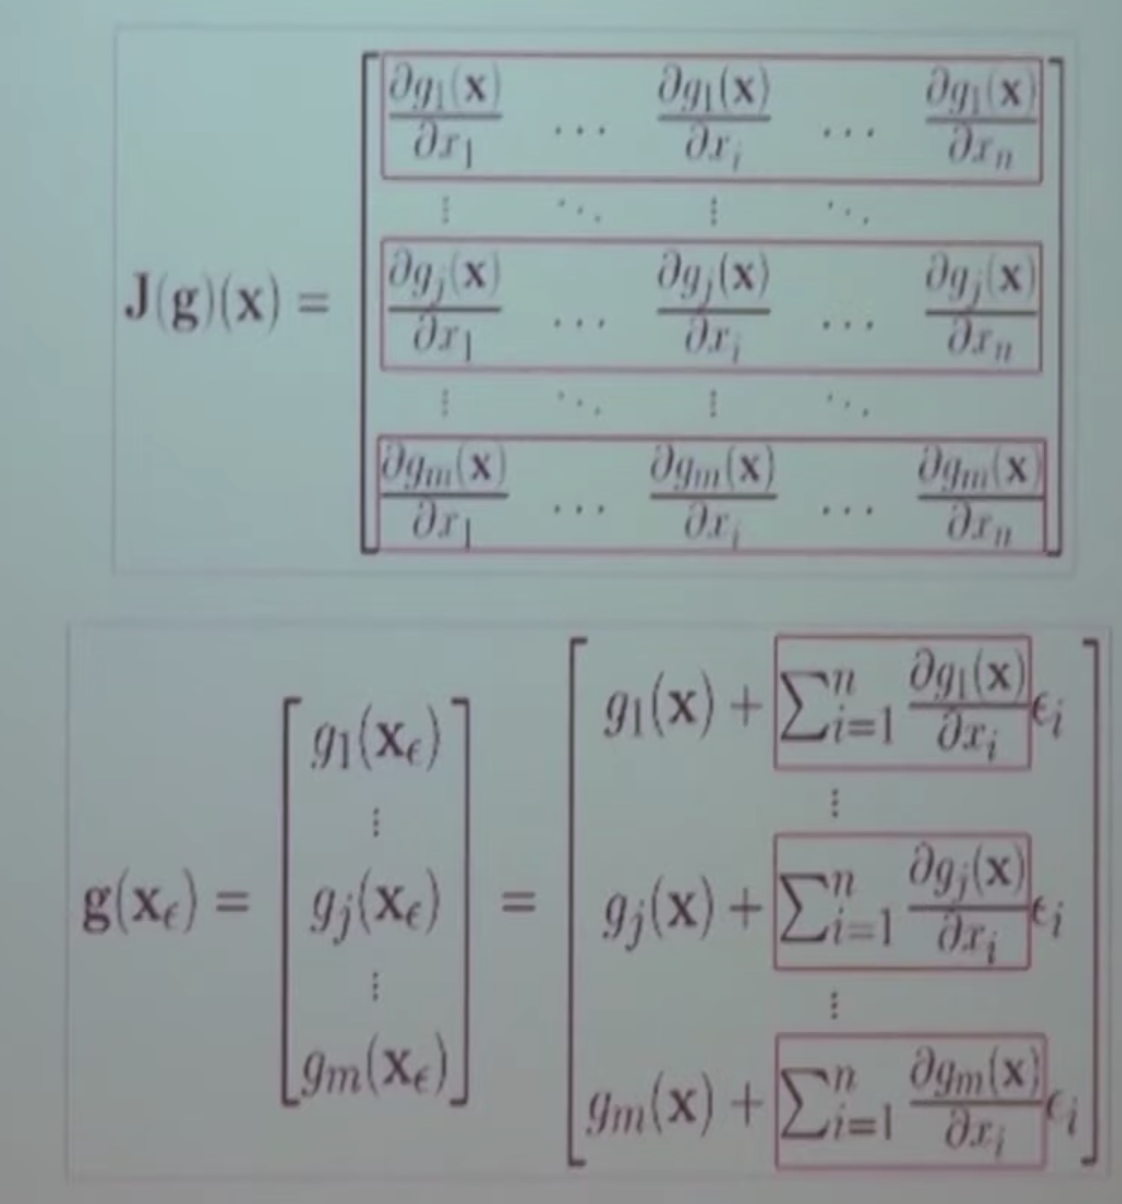 J(g)(x) =
∂g₁(x)/∂x₁ … ∂g₁(x)/∂xᵢ … ∂g₁(x)/∂xₙ
⋮ ⋱ ⋮ ⋱
∂gⱼ(x)/∂x₁ … ∂gⱼ(x)/∂xᵢ … ∂gⱼ(x)/∂xₙ
⋮ ⋱ ⋮ ⋱
∂gₘ(x)/∂x₁ … ∂gₘ(x)/∂xᵢ … ∂gₘ(x)/∂xₙ
g(x_ϵ) =
g₁(x_ϵ)
⋮
gⱼ(x_ϵ)
⋮
gₘ(x_ϵ)
=
g₁(x) + ∑ⁿᵢ₌₁ ∂g₁(x)/∂xᵢ ϵᵢ
⋮
gⱼ(x) + ∑ⁿᵢ₌₁ ∂gⱼ(x)/∂xᵢ ϵᵢ
⋮
gₘ(x) + ∑ⁿᵢ₌₁ ∂gₘ(x)/∂xᵢ ϵᵢ